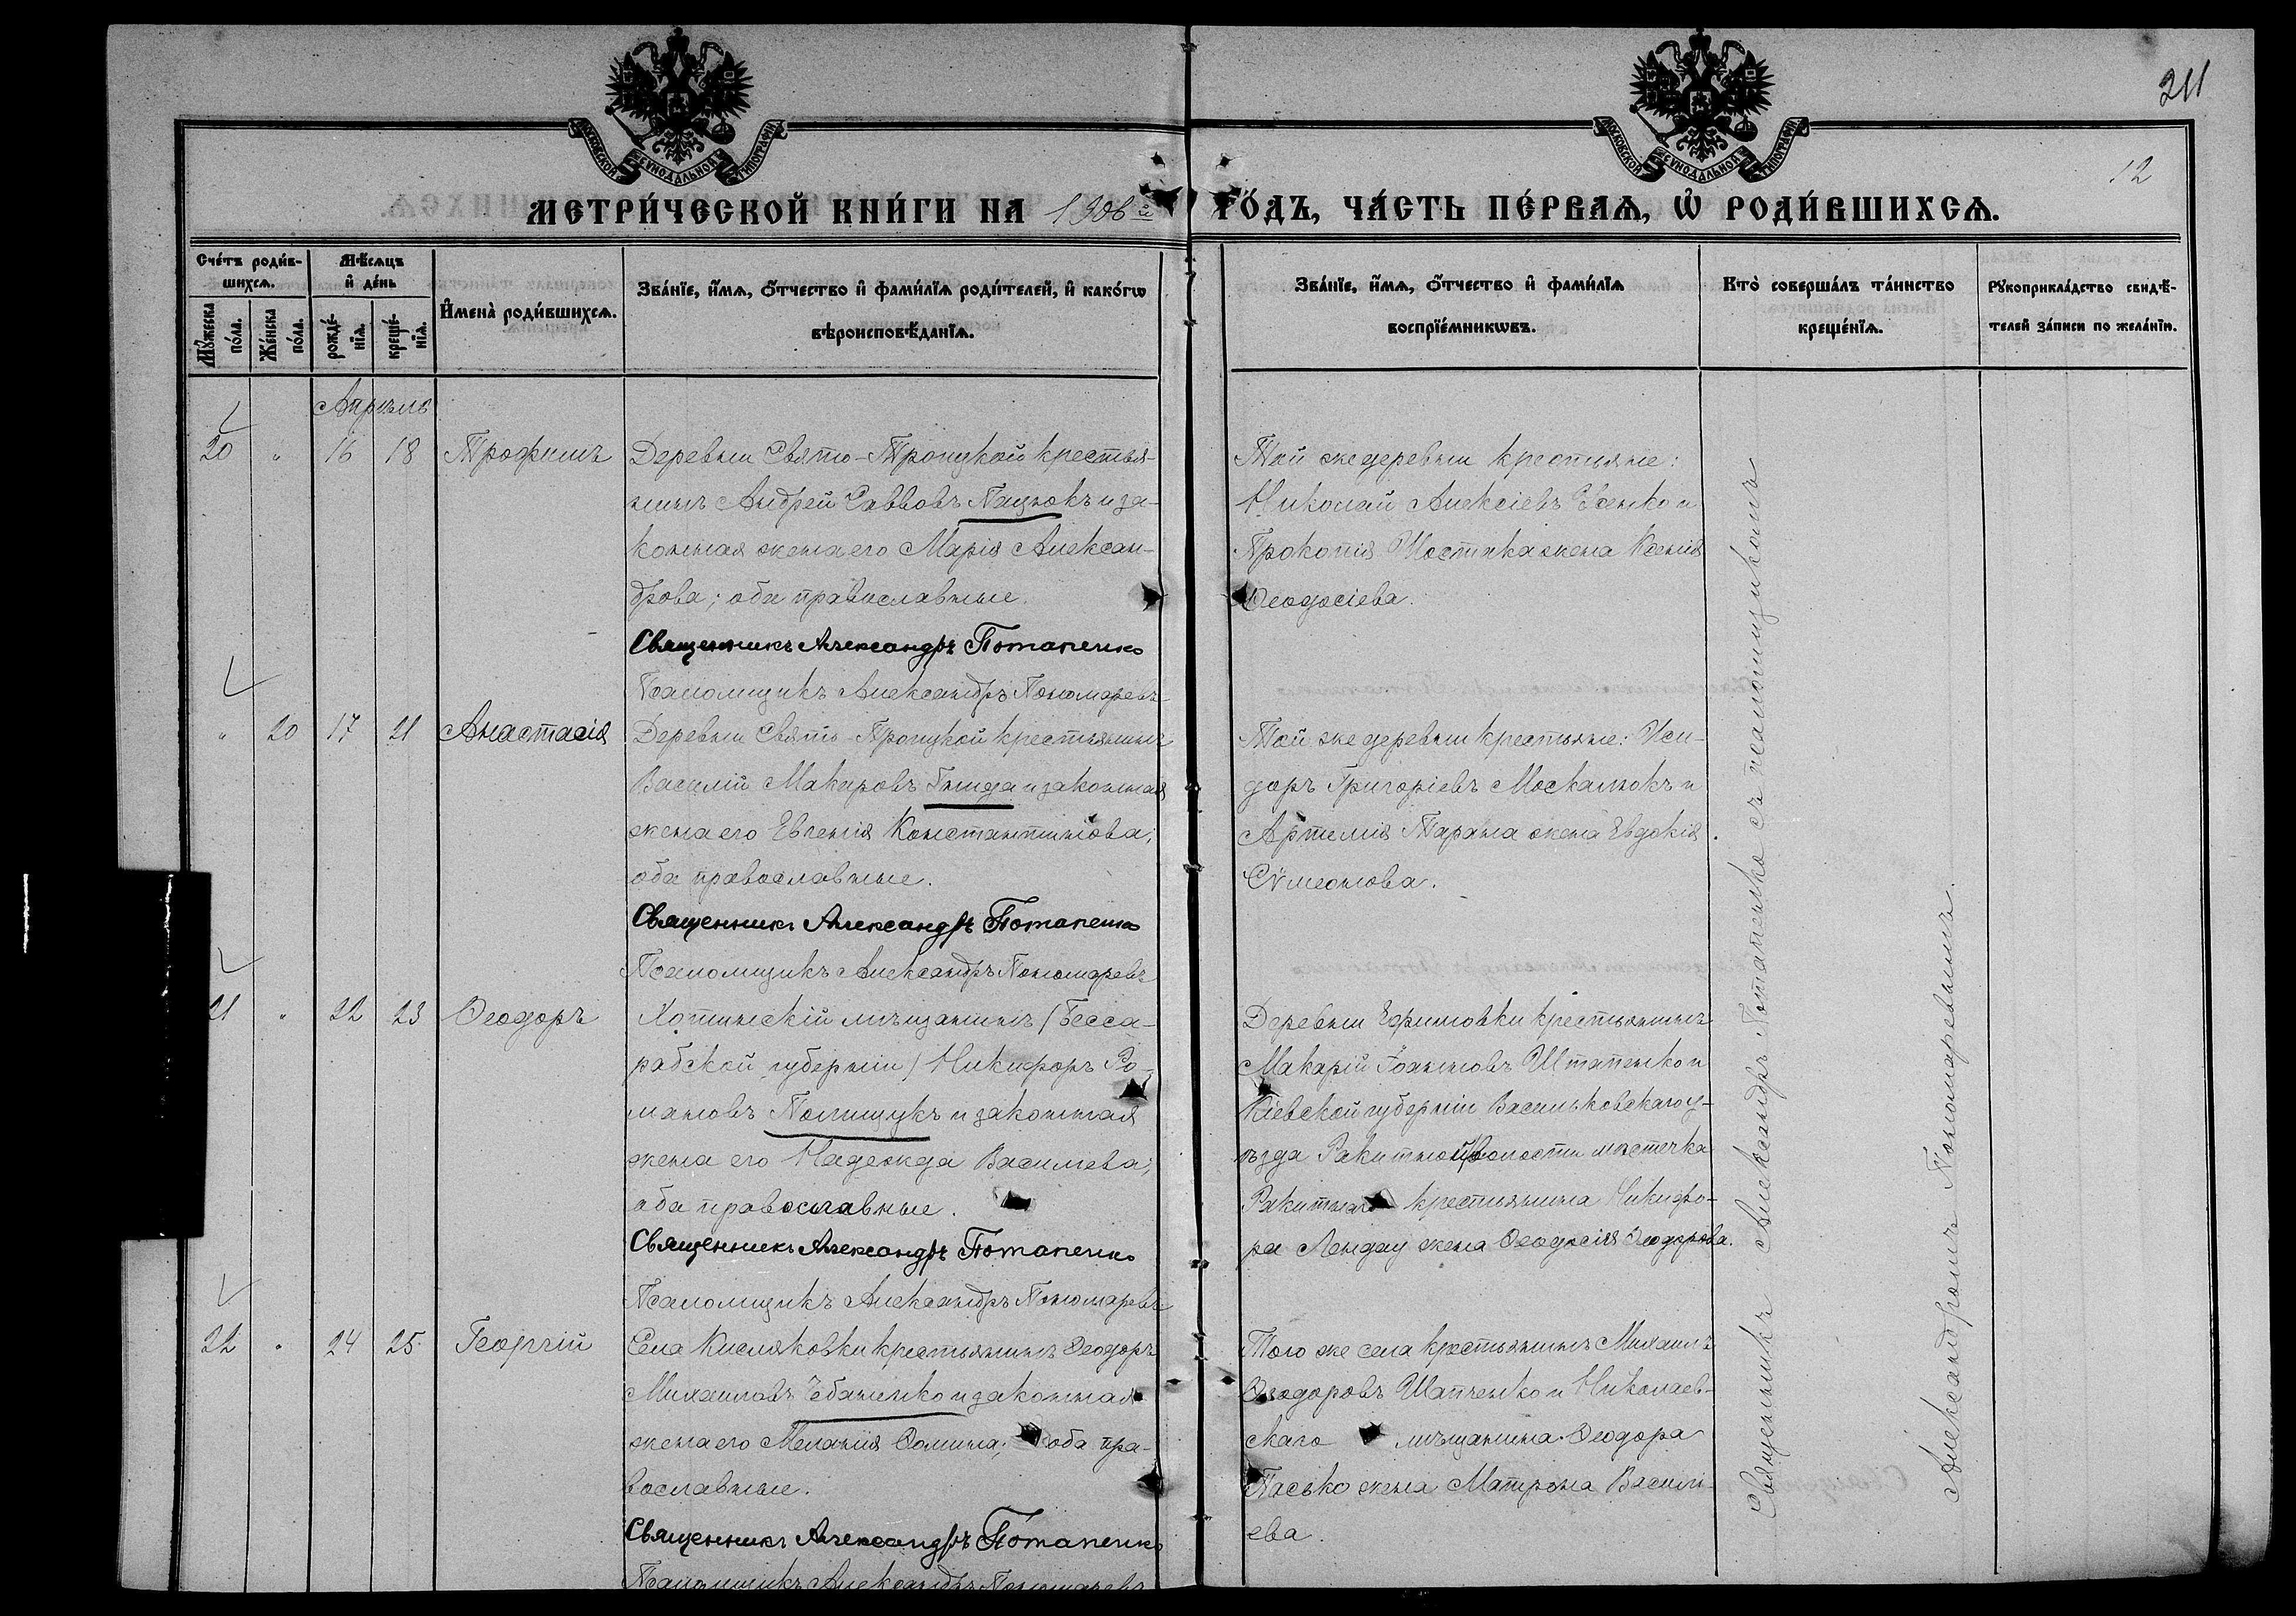 211
12
МОСКОВСКОЙ СѴНОДАЛЬНОЙ ТИПОГРАФІИ
МОСКОВСКОЙ СѴНОДАЛЬНОЙ ТИПОГРАФІИ
МЕТРИ́ЧЕСКОЙ КНИ́ГИ НА 1906й ГО́ДЪ, ЧА́СТЬ ПЕ́РВАѦ, Ѡ҆ РОДИ́ВШИХСѦ.
Сче́тъ роди́в-
шихсѧ.
Мѣ́сѧцъ
и҆ де́нь
Мꙋ́жеска
по́ла.
Же́нска
по́ла.
рожде́-
нїѧ.
креще́-
нїѧ.
И҆мена̀ роди́вшихсѧ.
Зва́нїе, и҆́мѧ, ѻ҆́тчество и҆ фами́лїѧ роди́телей, и҆ како́гѡ
вѣроисповѣ́данїѧ.
Зва́нїе, и҆́мѧ, ѻ҆́тчество и҆ фами́лїѧ
воспрїе́мникѡвъ.
Кто̀ соверша́лъ та́инство
креще́нїѧ.
Рꙋкоприкла́дство свидѣ́-
телей за́писи по жела́нїю.
Апрѣль
20 " 16 18 Трофимъ
Деревни Свято-Троицкой крестья-
нинъ Андрей Саввовъ Пацюкъ и за-
конная жена его Марія Алексан-
дрова; оба православные.
Священникъ Александръ Потапенко
Псаломщикъ Александръ Пономаревъ
Той же деревни крестьяне:
Николай Алексіевъ Усенко и
Прокопія Шостака жена Ксенія
Ѳеодосіева.
" 20 17 21 Анастасія
Деревни Свято-Троицкой крестьянинъ
Василій Макаровъ Гнида и законная
жена его Евгенія Константинова;
оба православные.
Священникъ Александръ Потапенко
Псаломщикъ Александръ Пономаревъ
Той же деревни крестьяне: Иси-
доръ Григоріевъ Москалюкъ и
Артемія Тарана жена Евдокія
Сѵмеонова.
21 " 22 23 Ѳеодоръ
Хотинскій мѣщанинъ (Бесса-
рабской губерніи) Никифоръ Ро-
мановъ Полищукъ и законная
жена его Надежда Василіева;
оба православные.
Священникъ Александръ Потапенко
Псаломщикъ Александръ Пономаревъ
Деревни Ефимовки крестьянинъ
Макарій Іоанновъ Штапенко и
Кіевской губерніи Васильковскаго у-
ѣзда Ракитной волости мѣстечка
Ракитнаго крестьянина Никифо-
ра Лендау жена Ѳеодосія Ѳеодорова.
22 " 24 25 Георгій
Села Кисляковки крестьянинъ Ѳеодоръ
Михаиловъ Чебаненко и законная
жена его Меланія Ѳомина; оба пра-
вославные.
Священникъ Александръ Потапенко
Псаломщикъ Александръ Пономаревъ
Того же села крестьянинъ Михаилъ
Ѳеодоровъ Шапченко и Николаев-
скаго мѣщанина Ѳеодора
Пасько жена Матрона Василі-
ева.
Священникъ Александръ Потапенко съ псаломщикомъ
Александромъ Пономаревымъ.